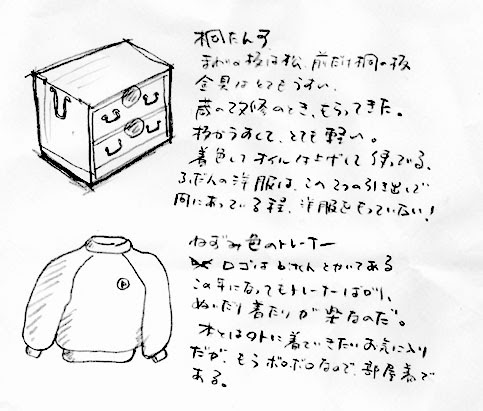 桐たんす
まわりの板は松、前だけ桐の板
金具はとてもうすい、
蔵の改修のとき、もらってきた。
板がうすくて、とても軽い。
着色してオイル仕上げして使っている、
ふだんの洋服は、この2つの引き出しで
間にあっている程、洋服をもっていない!
ねずみ色のトレーナー
ロゴは とかいてある
この年になってもトレーナーばかり、
ぬいだり着たりが楽なのだ。
本とは外に着ていきたいお気に入り
だが、もうボロボロなので、部屋着で
ある。
P